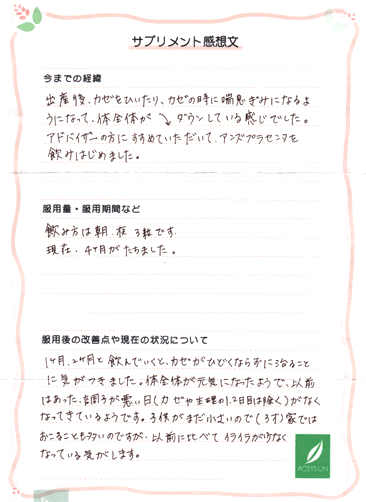 サプリメント感想文
今までの経緯
出産後、カゼをひいたり、カゼの時に喘息ぎみになるよ
うになって、体全体が ↘ ダウンしている感じでした。
アドバイザーの方にすすめていただいて、アンズプラセンタを
飲みはじめました。
服用量・服用期間など
飲み方は朝・夜 3粒です。
現在、4ヶ月がたちました。
服用後の改善点や現在の状況について
1ヶ月、2ヶ月と飲んでいくと、カゼがひどくならずに治ること
に気がつきました。体全体が元気になったようで、以前
はあった、調子が悪い日(カゼや生理の1、2日目は除く)がなく
なってきているようです。子供がまだ小さいので(3才)家では
おこることも多いのですが、以前に比べてイライラが少なく
なっている気がします。
ACSYS'UN